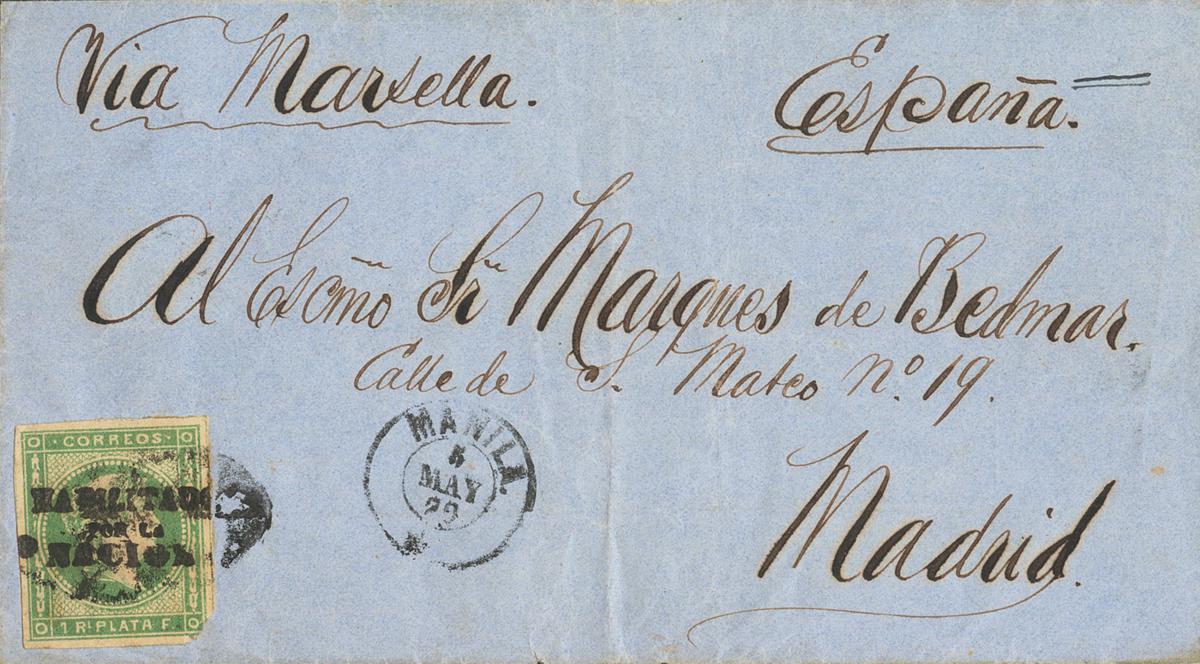 Via Marsella.
España.
Al Escmo Sr Marques de Bedmar.
Calle de S. Mateo nº 19.
Madrid.
MANILA.
5
MAY
CORREOS
HABILITADO
POR LA
NACION
1 Rl PLATA F.